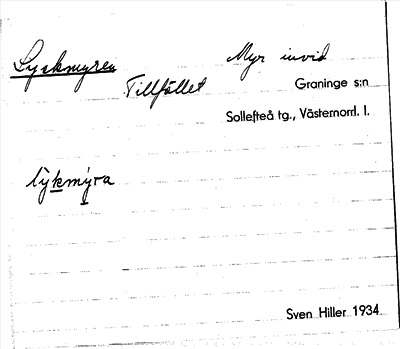 Lyckmyren Myr invid
Tillfället Graninge s:n
Sollefteå tg., Västernorrl. l.
lykmýra
Sven Hiller 1934